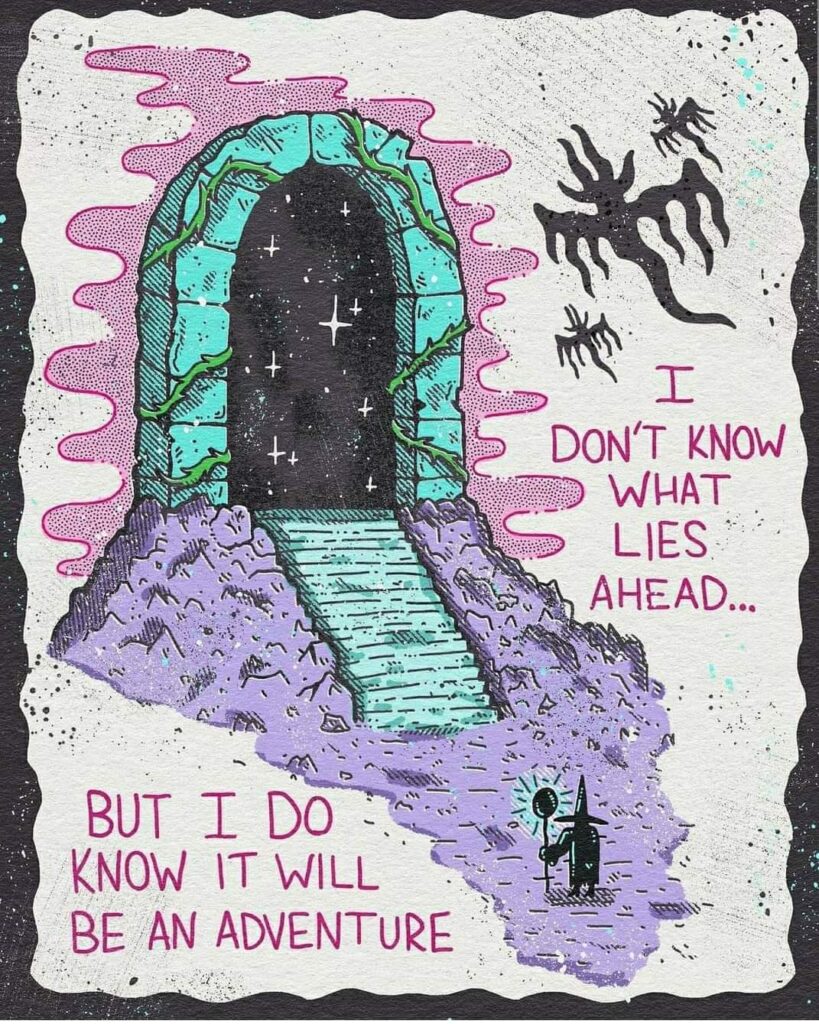 I
DON'T KNOW
WHAT
LIES
AHEAD...
BUT I DO
KNOW IT WILL
BE AN ADVENTURE